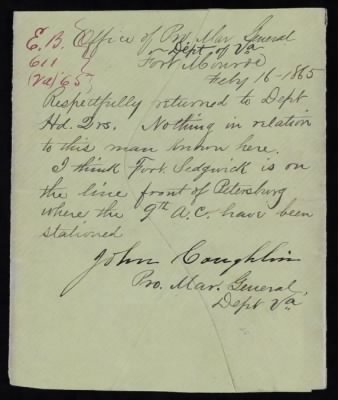 E.B. Office of Pro. Mar. General
611 Dept of Va
(Va) 65 Fort Monroe
Feby 16-1865
Respectfully returned to Dept
Hd. Qrs. Nothing in relation
to this man known here.
I think Fort Sedgwick is on
the line front of Petersburg
where the 9th A.C. have been
stationed
John Coughlin
Pro. Mar. General,
Dept Va